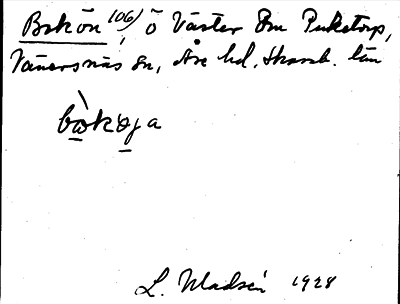 Bokön 106) ö Väster Om Puketorp,
Vänersnäs sn, Åse hd. Skarab. län
bòkøja
L. Madsén 1928